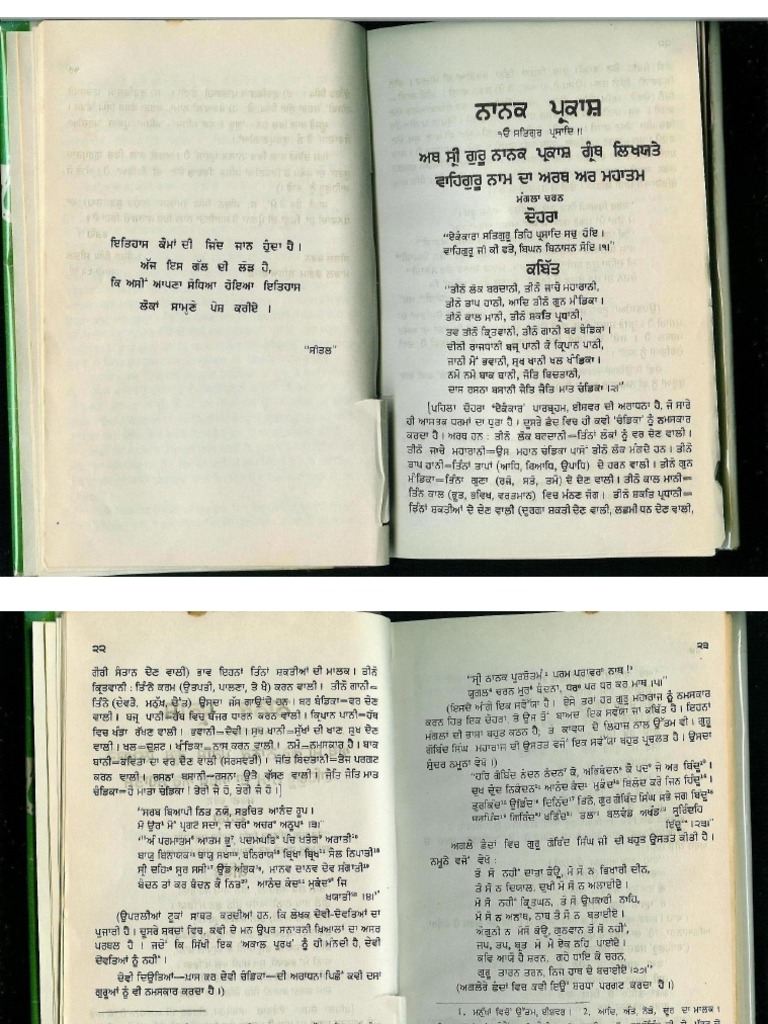 ਇਤਿਹਾਸ ਕੌਮਾਂ ਦੀ ਜਿੰਦ ਜਾਨ ਹੁੰਦਾ ਹੈ।
ਅੱਜ ਇਸ ਗੱਲ ਦੀ ਲੋੜ ਹੈ,
ਕਿ ਅਸੀਂ ਆਪਣਾ ਸੋਧਿਆ ਹੋਇਆ ਇਤਿਹਾਸ
ਲੋਕਾਂ ਸਾਮ੍ਹਣੇ ਪੇਸ਼ ਕਰੀਏ ।
"ਸੀਤਲ"
ਨਾਨਕ ਪ੍ਰਕਾਸ਼
ੴ ਸਤਿਗੁਰ ਪ੍ਰਸਾਦਿ॥
ਅਥ ਸ੍ਰੀ ਗੁਰੂ ਨਾਨਕ ਪ੍ਰਕਾਸ਼ ਗ੍ਰੰਥ ਲਿਖਯਤੇ
ਵਾਹਿਗੁਰੂ ਨਾਮ ਦਾ ਅਰਥ ਅਰ ਮਹਾਤਮ
ਮੰਗਲਾ ਚਰਨ
ਦੋਹਰਾ
"ਏਕੰਕਾਰਾ ਸਤਿਗੁਰੂ ਤਿਹਿ ਪ੍ਰਸਾਦਿ ਸਚੁ ਹੋਇ।
ਵਾਹਿਗੁਰੂ ਜੀ ਕੀ ਫਤੇ, ਬਿਘਨ ਬਿਨਾਸਨ ਸੋਇ।੧"
ਕਬਿੱਤ
"ਤੀਨੋ ਲੋਕ ਬਰਦਾਨੀ, ਤੀਨੋ ਜਾਚੇ ਮਹਾਰਾਨੀ,
ਤੀਨੋ ਤਾਪ ਹਾਨੀ, ਆਦਿ ਤੀਨੋ ਗੁਨ ਮੰਡਿਕਾ।
ਤੀਨੋ ਕਾਲ ਮਾਨੀ, ਤੀਨੋ ਸ਼ਕਤਿ ਪ੍ਰਧਾਨੀ,
ਤਵ ਤੀਨੋ ਕ੍ਰਿਤਵਾਨੀ, ਤੀਨੋ ਗਾਨੀ ਬਰ ਬੰਡਿਕਾ।
ਦੀਲੀ ਰਾਜਧਾਨੀ ਬਜ੍ਰ ਪਾਨੀ ਕੈ ਕ੍ਰਿਪਾਨ ਪਾਨੀ,
ਜਾਨੀ ਮੈਂ ਭਵਾਨੀ, ਸੁਖ ਖਾਨੀ ਖਲ ਖੰਡਿਕਾ।
ਨਮੋ ਨਮੋ ਬਾਕ ਬਾਨੀ, ਜੋਤਿ ਬਿਦਤਾਨੀ,
ਦਾਸ ਰਸਨਾ ਬਸਾਨੀ ਜੈਤਿ ਜੈਤਿ ਮਾਤ ਚੰਡਿਕਾ।੨।"
[ਪਹਿਲਾ ਦੋਹਰਾ 'ਏਕੰਕਾਰ' ਪਾਰਬ੍ਰਹਮ, ਈਸ਼ਵਰ ਦੀ ਅਰਾਧਨਾ ਹੈ, ਜੋ ਸਾਰੇ
ਹੀ ਆਸਤਕ ਧਰਮਾਂ ਦਾ ਧੁਰਾ ਹੈ। ਦੂਸਰੇ ਛੰਦ ਵਿਚ ਹੀ ਕਵੀ 'ਚੰਡਿਕਾ' ਨੂੰ ਨਮਸਕਾਰ
ਕਰਦਾ ਹੈ। ਅਰਥ ਹਨ : ਤੀਨੋ ਲੋਕ ਬਰਦਾਨੀ=ਤਿੰਨਾਂ ਲੋਕਾਂ ਨੂੰ ਵਰ ਦੇਣ ਵਾਲੀ।
ਤੀਨੋ ਜਾਚੇ ਮਹਾਰਾਨੀ=ਉਸ ਮਹਾਨ ਚੰਡਿਕਾ ਪਾਸੋਂ ਤੀਨੋ ਲੋਕ ਮੰਗਦੇ ਹਨ। ਤੀਨੋ
ਤਾਪ ਹਾਨੀ=ਤਿੰਨਾਂ ਤਾਪਾਂ (ਆਧਿ, ਬਿਆਧਿ, ਉਪਾਧਿ) ਦੇ ਹਰਨ ਵਾਲੀ। ਤੀਨੋ ਗੁਨ
ਮੰਡਿਕਾ=ਤਿੰਨਾਂ ਗੁਣਾ (ਰਜੋ, ਸਤੋ, ਤਮੋ) ਦੇ ਦੇਣ ਵਾਲੀ। ਤੀਨੋ ਕਾਲ ਮਾਨੀ=
ਤਿੰਨ ਕਾਲ (ਭੂਤ, ਭਵਿਖ, ਵਰਤਮਾਨ) ਵਿਚ ਮੰਨਣ ਜੋਗ। ਤੀਨੋ ਸ਼ਕਤਿ ਪ੍ਰਧਾਨੀ=
ਤਿੰਨਾਂ ਸ਼ਕਤੀਆਂ ਦੇ ਦੇਣ ਵਾਲੀ (ਦੁਰਗਾ ਸ਼ਕਤੀ ਦੇਣ ਵਾਲੀ, ਲਛਮੀ ਧਨ ਦੇਣ ਵਾਲੀ,
੨੨
ਗੌਰੀ ਸੰਤਾਨ ਦੇਣ ਵਾਲੀ) ਭਾਵ ਇਹਨਾਂ ਤਿੰਨਾਂ ਸ਼ਕਤੀਆਂ ਦੀ ਮਾਲਕ। ਤੀਨੋ
ਕ੍ਰਿਤਵਾਨੀ : ਤਿੰਨੇ ਕਰਮ (ਉਤਪਤੀ, ਪਾਲਣਾ, ਤੇ ਖੈ) ਕਰਨ ਵਾਲੀ। ਤੀਨੋ ਗਾਨੀ=
ਤਿੰਨੇ (ਦੇਵਤੇ, ਮਨੁੱਖ, ਦੈਂਤ) ਉਸਦਾ ਜੱਸ ਗਾਉਂਦੇ ਹਨ। ਬਰ ਬੰਡਿਕਾ=ਵਰ ਦੇਣ
ਵਾਲੀ। ਬਜ੍ਰ ਪਾਨੀ=ਹੱਥ ਵਿਚ ਬੱਜਰ ਧਾਰਨ ਕਰਨ ਵਾਲੀ। ਕ੍ਰਿਪਾਨ ਪਾਨੀ=ਹੱਥ
ਵਿਚ ਖੰਡਾ ਰੱਖਣ ਵਾਲੀ। ਭਵਾਨੀ=ਦੇਵੀ। ਸੁਖ ਖਾਨੀ=ਸੁੱਖਾਂ ਦੀ ਖਾਣ, ਸੁਖ ਦੇਣ
ਵਾਲੀ। ਖਲ=ਦੁਸ਼ਟ। ਖੰਡਿਕਾ=ਨਾਸ ਕਰਨ ਵਾਲੀ। ਨਮੋ=ਨਮਸਕਾਰ ਹੈ। ਬਾਕ
ਬਾਨੀ=ਕਵਿਤਾ ਦਾ ਵਰ ਦੇਣ ਵਾਲੀ (ਸਰਸਵਤੀ)। ਜੋਤਿ ਬਿਦਤਾਨੀ=ਤੇਜ ਪਰਗਟ
ਕਰਨ ਵਾਲੀ। ਰਸਨਾ ਬਸਾਨੀ=ਰਸਨਾ ਉਤੇ ਵੱਸਣ ਵਾਲੀ। ਜੈਤਿ ਜੈਤਿ ਮਾਤ
ਚੰਡਿਕਾ=ਹੇ ਮਾਤਾ ਚੰਡਿਕਾ! ਤੇਰੀ ਜੈ ਹੋ, ਤੇਰੀ ਜੈ ਹੋ।]
"ਸਰਬ ਬਿਆਪੀ ਨਿਤ ਨਯੋ, ਸਤਚਿਤ ਆਨੰਦ ਰੂਪ।
ਮੋ ਉਰਾਂ ਮੈਂ ਪ੍ਰਗਟੋ ਸਦਾ, ਜੋ ਚਰਾਂ ਅਚਰਾਂ ਅਨੂਪਾਂ।੩।"
ਬੰਦਨ ਤਾਂ ਕਰ ਬੰਦਨ ਕੈ ਨਿਤ, ਆਨੰਦ ਕੰਦ ਮੁਕੰਦ ਜਿ
(ਉਪਰਲੀਆਂ ਟੂਕਾਂ ਸਾਬਤ ਕਰਦੀਆਂ ਹਨ, ਕਿ ਲੇਖਕ ਦੇਵੀ-ਦੇਵਤਿਆਂ ਦਾ
ਪੁਜਾਰੀ ਹੈ। ਦੂਸਰੇ ਸ਼ਬਦਾਂ ਵਿਚ, ਕਵੀ ਦੇ ਮਨ ਉਪਰ ਸਨਾਤਨੀ ਖ਼ਿਆਲਾਂ ਦਾ ਅਸਰ
ਪਰਬਲ ਹੈ। ਜਦੋਂ ਕਿ ਸਿੱਖੀ ਇਕ 'ਅਕਾਲ ਪੁਰਖ' ਨੂੰ ਹੀ ਮੰਨਦੀ ਹੈ, ਦੇਵੀ
ਦੇਵਤਿਆਂ ਨੂੰ ਨਹੀਂ।
ਦੇਵੀ ਦਿਉਤਿਆਂ—ਖ਼ਾਸ ਕਰ ਦੇਵੀ ਚੰਡਿਕਾ—ਦੀ ਅਰਾਧਨਾ ਪਿਛੋਂ ਕਵੀ ਦਸਾਂ
ਗੁਰੂਆਂ ਨੂੰ ਵੀ ਨਮਸਕਾਰ ਕਰਦਾ ਹੈ।)
੨੩
"ਸ੍ਰੀ ਨਾਨਕ ਪੁਰਸ਼ੋਤਮੰ ਪਰਮ ਪਰਾਵਰਾਂ ਨਾਥ!
ਯੁਗਲਾਂ ਚਰਨ ਮੁਰਾਂ ਬੰਦਨਾ, ਧਰਾਂ ਪਰ ਧਰ ਕਰ ਮਾਥ।੫।"
(ਇਸਦੇ ਅੱਗੇ ਇਕ ਸਵੈਯਾ ਹੈ। ਏਸੇ ਤਰਾਂ ਹਰ ਗੁਰੂ ਮਹਾਰਾਜ ਨੂੰ ਨਮਸਕਾਰ
ਕਰਨ ਹਿਤ ਇਕ ਦੋਹਰਾ, ਤੇ ਉਸ ਤੋਂ ਬਾਅਦ ਇਕ ਸਵੈਯਾ ਜਾਂ ਕਬਿਤ ਹੈ। ਇਹਨਾਂ
ਮੰਗਲਾਂ ਦੀ ਭਾਸ਼ਾ ਬਹੁਤ ਕਠਨ ਹੈ, ਤੇ ਕਾਵਯ ਦੇ ਲਿਹਾਜ਼ ਨਾਲ ਉੱਤਮ ਵੀ। ਗੁਰੂ
ਗੋਬਿੰਦ ਸਿੰਘ ਮਹਾਰਾਜ ਦੀ ਉਸਤਤ ਵਜੋਂ ਇਕ ਸਵੈਯਾ ਬਹੁਤ ਪ੍ਰਚਲਤ ਹੈ। ਉਸਦਾ
ਸੁੰਦਰ ਨਮੂਨਾ ਵੇਖੋ।)
ਅਗਲੇ ਛੰਦਾਂ ਵਿਚ ਗੁਰੂ ਗੋਬਿੰਦ ਸਿੰਘ ਜੀ ਦੀ ਬਹੁਤ ਉਸਤਤ ਕੀਤੀ ਹੈ।
ਨਮੂਨੇ ਵਜੋਂ ਵੇਖੋ :
ਤੋ ਸੋ ਨਹੀਂ ਦਾਤਾ ਕੋਊ, ਮੋ ਸੋ ਨ ਭਿਖਾਰੀ ਦੀਨ,
ਤੋ ਸੋ ਨ ਦਿਯਾਲ, ਦੁਖੀ ਮੋ ਸੋ ਨ ਅਲਾਈਏ।
ਮੋ ਸੋ ਨਹੀਂ ਕ੍ਰਿਤਘਨ, ਤੋ ਸੋ ਉਪਕਾਰੀ ਨਾਹਿ,
ਮੋ ਸੋ ਨ ਅਨਾਥ, ਨਾਥ ਤੋ ਸੋ ਨ ਬਤਾਈਏ।
ਔਗੁਨੀ ਨ ਮੋਸੋ ਕੋਊ, ਗੁਨਵਾਨ ਤੋ ਸੋ ਨਹੀਂ,
ਜਪ, ਤਪ, ਬ੍ਰਤ ਮੋ ਮੈਂ ਏਕ ਨਹਿ ਪਾਈਏ।
ਕਵਿ ਆਯੋ ਹੈ ਸ਼ਰਨ, ਗਹੇ ਹਾਇ ਕੈ ਚਰਨ,
ਗੁਰੂ ਤਾਰਨ ਤਰਨ, ਨਿਜ ਹਾਥ ਦੇ ਬਚਾਈਏ।੨੭।"
(ਅਗਲੇਰੇ ਛੰਦਾਂ ਵਿਚ ਕਵੀ ਇਉਂ ਸ਼ਰਧਾ ਪਰਗਟ ਕਰਦਾ ਹੈ।)
1. ਮਨੁੱਖਾਂ ਵਿਚੋਂ ਉੱਤਮ, ਈਸ਼ਵਰ। 2. ਆਦਿ, ਅੰਤ, ਨੇੜੇ, ਦੂਰ ਦਾ ਮਾਲਕ।